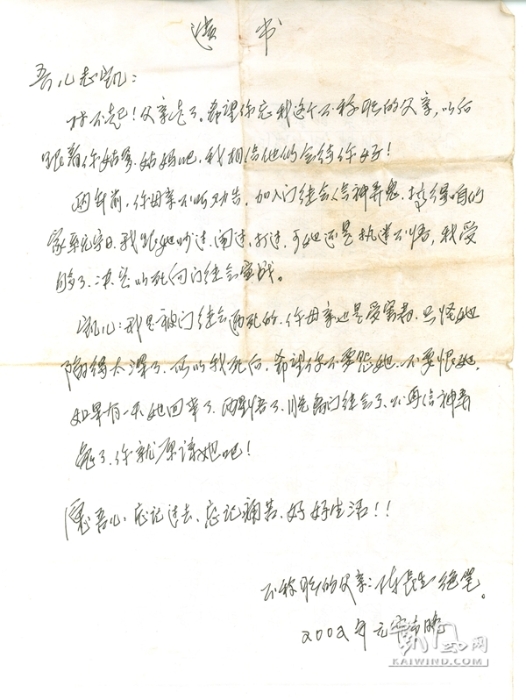 遗书
吾儿志凯：
对不起！父亲走了，希望你忘我这个不称职的父亲，以后
跟着你姑爹、姑妈吧，我相信他们会待你好！
两年前，你母亲不听劝告，加入门徒会信神弄鬼，搞得咱们
家无宁日，我跟她吵过、闹过、打过，可她还是执迷不悟，我受
够了，决定以死向门徒会宣战。
凯儿：我是被门徒会逼死的，你母亲也是受害者，只怪她
陷得太深了，所以我死后，希望你不要怨她、不要恨她，
如果有一天她回来了，醒悟了，脱离门徒会了，不再信神弄
鬼了，你就原谅她吧！
愿吾儿：忘记过去、忘记痛苦、好好生活！！
不称职的父亲：陈长生绝笔。
2002年元宵晚
凯风网
KAIWIND.COM